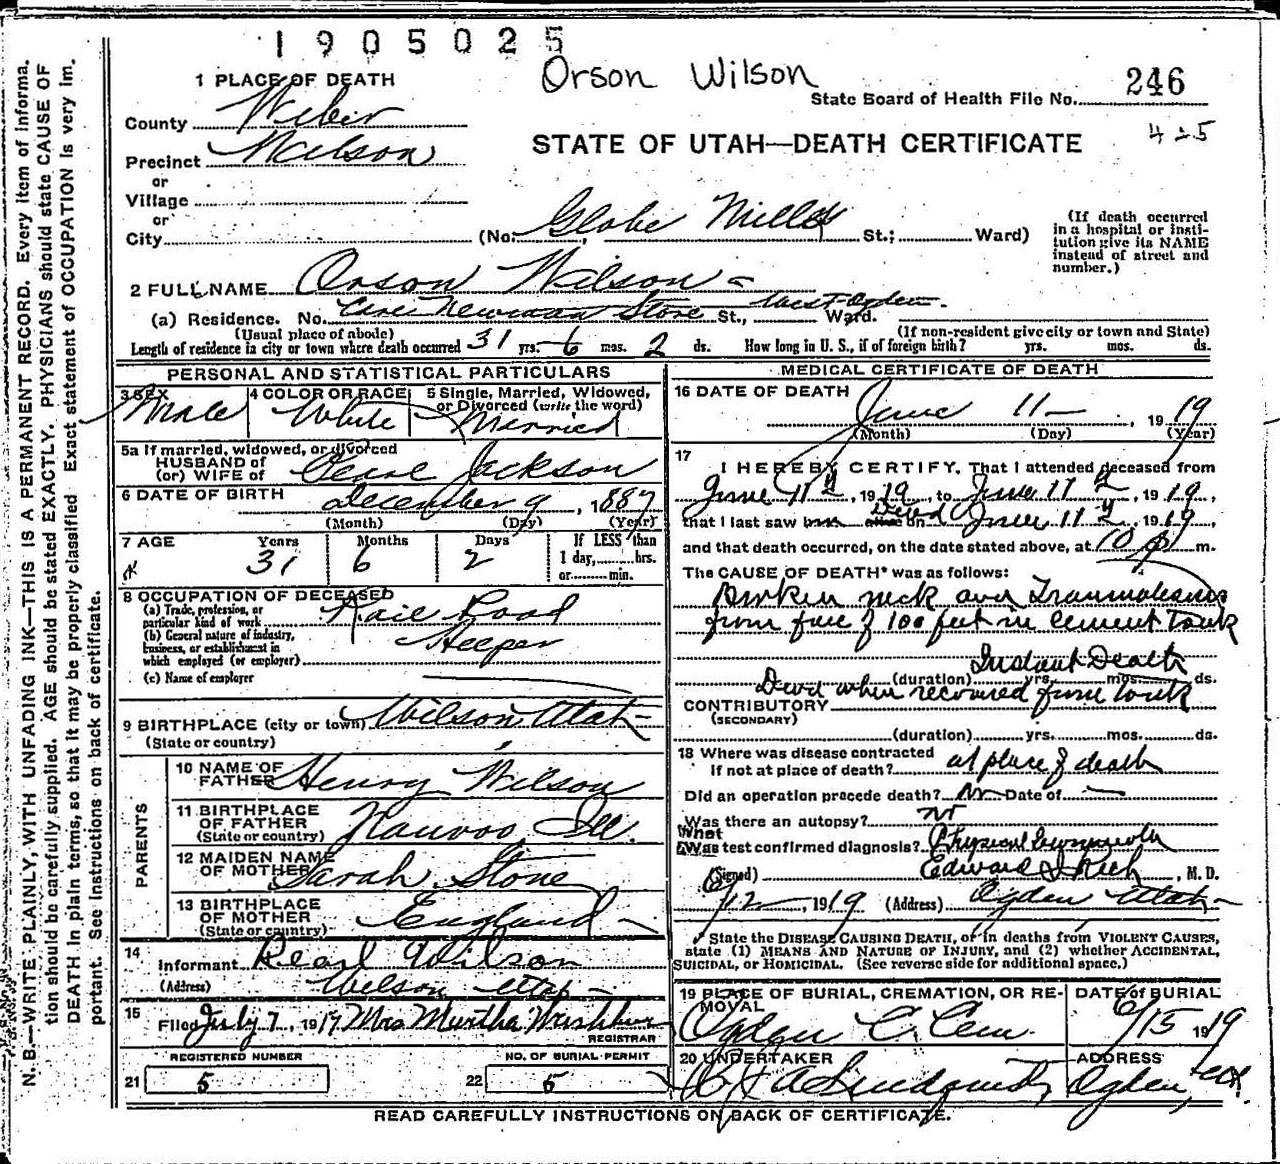 1905025
Orson Wilson
246
State Board of Health File No.
425
STATE OF UTAH—DEATH CERTIFICATE
1 PLACE OF DEATH
County Weber
Precinct Wilson
or
Village
or
City (No. Globe Mills St.; Ward)
(If death occurred
in a hospital or insti-
tution give its NAME
instead of street and
number.)
2 FULL NAME Orson Wilson
(a) Residence. No. Care Newman Store St., West Ogden Ward.
(Usual place of abode) (If non-resident give city or town and State)
Length of residence in city or town where death occurred 31 yrs. 6 mos. 2 ds. How long in U. S., if of foreign birth? yrs. mos. ds.
PERSONAL AND STATISTICAL PARTICULARS
3 SEX Male
4 COLOR OR RACE White
5 Single, Married, Widowed,
or Divorced (write the word)
Married
5a If married, widowed, or divorced
HUSBAND of
(or) WIFE of Pearl Jackson
6 DATE OF BIRTH December 9, 1887
(Month) (Day) (Year)
7 AGE Years Months Days If LESS than
31 6 2 1 day, hrs.
or min.
8 OCCUPATION OF DECEASED
(a) Trade, profession, or
particular kind of work Rail Road
(b) General nature of industry,
business, or establishment in
which employed (or employer)
(c) Name of employer
9 BIRTHPLACE (city or town) Wilson Utah
(State or country)
PARENTS
10 NAME OF
FATHER Henry Wilson
11 BIRTHPLACE
OF FATHER Nauvoo Ill.
(State or country)
12 MAIDEN NAME
OF MOTHER Sarah Stone
13 BIRTHPLACE
OF MOTHER England
(State or country)
14
Informant Pearl Wilson
(Address) Wilson Utah
15
Filed July 7, 1919 Mrs Murtha
REGISTRAR
REGISTERED NUMBER
21 5
NO. OF BURIAL PERMIT
22 5
MEDICAL CERTIFICATE OF DEATH
16 DATE OF DEATH
June 11, 1919
(Month) (Day) (Year)
17
I HEREBY CERTIFY, That I attended deceased from
June 11, 1919, to June 11, 1919,
that I last saw him alive on Dead June 11, 1919
and that death occurred, on the date stated above, at 10 P m.
The CAUSE OF DEATH* was as follows:
Broken neck and Traumatisms
from fall of 100 feet in cement tank
Instant Death
(duration) yrs. mos. ds.
Dead when recovered from tank
CONTRIBUTORY
(SECONDARY)
(duration) yrs. mos. ds.
18 Where was disease contracted
if not at place of death? at place of death
Did an operation precede death? No Date of
Was there an autopsy? No
What
Was test confirmed diagnosis? Physical
(Signed) Edward I Rich, M. D.
6/12, 1919 (Address) Ogden Utah
State the DISEASE CAUSING DEATH, or in deaths from VIOLENT CAUSES,
state (1) MEANS AND NATURE OF INJURY, and (2) whether ACCIDENTAL,
SUICIDAL, or HOMICIDAL. (See reverse side for additional space.)
19 PLACE OF BURIAL, CREMATION, OR RE-
MOVAL
Ogden C. Cem.
DATE of BURIAL
6/15 1919
20 UNDERTAKER
ADDRESS
Ogden, Utah.
READ CAREFULLY INSTRUCTIONS ON BACK OF CERTIFICATE.
N. B.—WRITE PLAINLY, WITH UNFADING INK—THIS IS A PERMANENT RECORD. Every item of informa-
tion should be carefully supplied. AGE should be stated EXACTLY. PHYSICIANS should state CAUSE OF
DEATH in plain terms, so that it may be properly classified Exact statement of OCCUPATION is very im.
portant. See instructions on back of certificate.